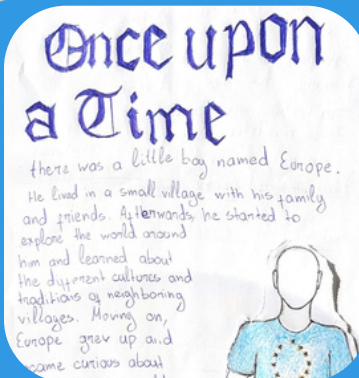 Once upon
a Time
there was a little boy named Europe.
He lived in a small village with his family
and friends. Afterwards, he started to
explore the world around
him and learned about
the different cultures and
traditions of neighboring
villages. Moving on,
Europe grew up and
came curious about